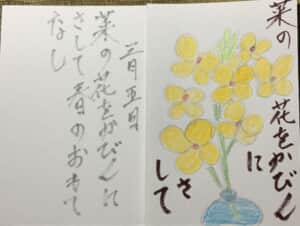 菜の花をかびん
にさして
三月五日
菜の花をかびんに
さして春のおもて
なし